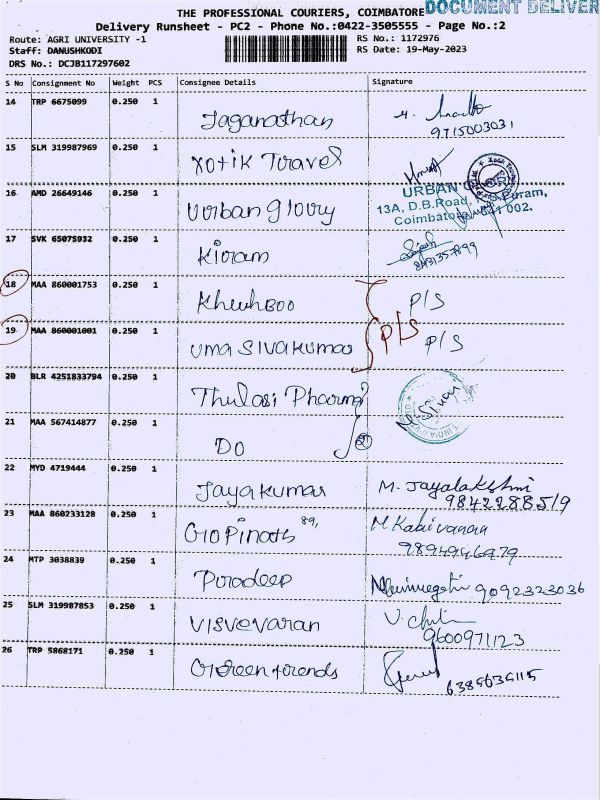 DOCUMENT DELIVER
THE PROFESSIONAL COURIERS, COIMBATORE
Delivery Runsheet - PC2 - Phone No.:0422-3505555 - Page No.:2
Route: AGRI UNIVERSITY -1
RS No.: 1172976
Staff: DANUSHKODI
RS Date: 19-May-2023
DRS No.: DCJB117297602
S No Consignment No Weight PCS Consignee Details Signature
14 TRP 6675099 0.250 1 Jaganathan
9715003031
15 SLM 319987969 0.250 1 Xotik Travel
16 AMD 26649146 0.250 1 Urban Glory
URBAN
13A, D.B.Road,
Coimbatore 641 002.
17 SVK 65075932 0.250 1 Kiram
18 MAA 860001753 0.250 1 Khushboo P/S
P/S
19 MAA 860001001 0.250 1 Uma Sivakumar P/S
20 BLR 4251833794 0.250 1 Thulasi Pharma
21 MAA 567414877 0.250 1 DO
22 MYD 4719444 0.250 1 Jayakumar M. Jayalakshmi
9842288519
23 MAA 860233128 0.250 1 Gopinath 89, M Kalivanan
9894946979
24 MTP 3038839 0.250 1 Pradeep 9092323036
25 SLM 319987853 0.250 1 Visvevaran
9600971123
26 TRP 5868171 0.250 1 Green trends
6385636115